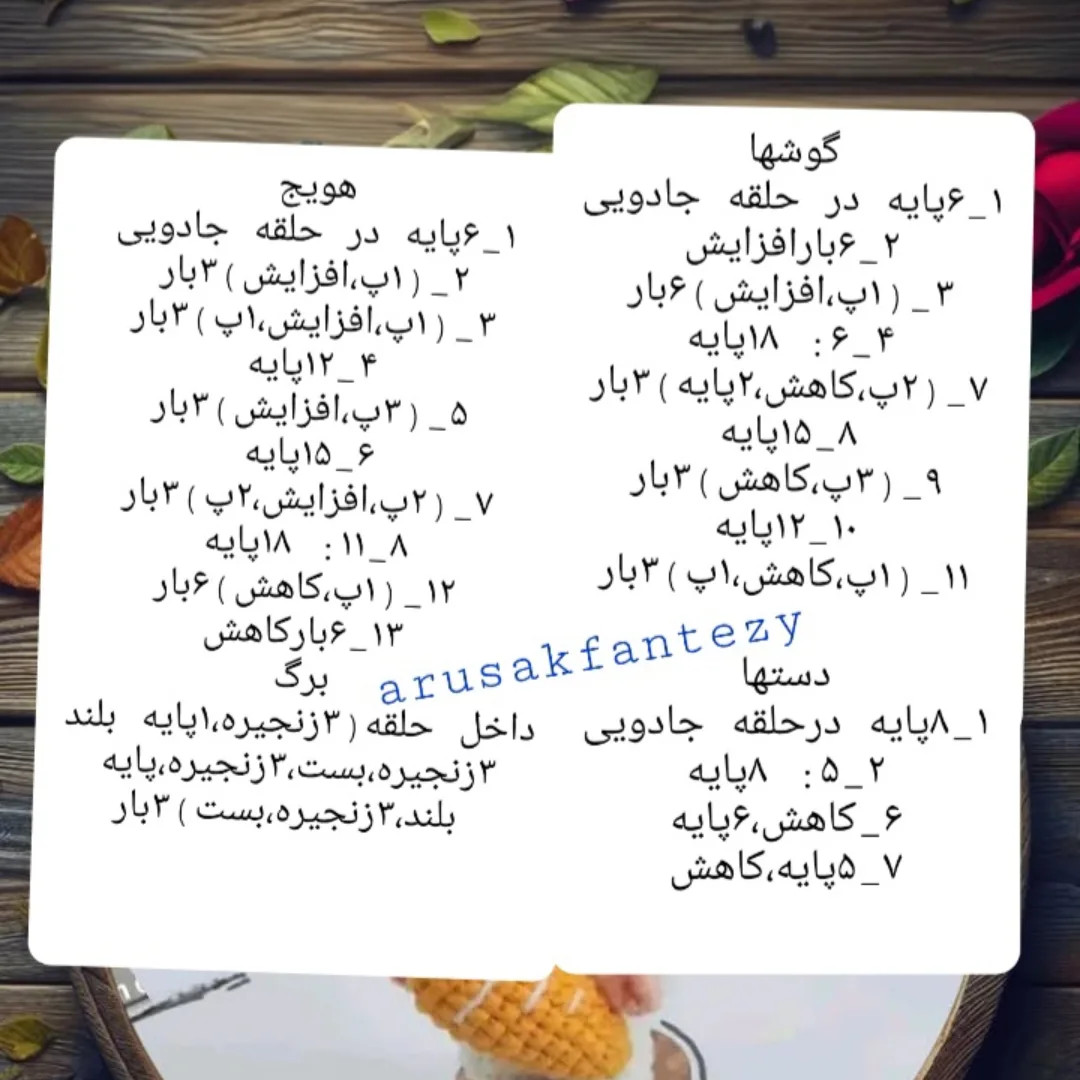 گوشها
۱_۶پایه در حلقه جادویی
۲_۶بارافزایش
۳_ (۱پ،افزایش) ۶بار
۴_۶: ۱۸پایه
۷_ (۲پ،کاهش،۲پایه) ۳بار
۸_۱۵پایه
۹_ (۳پ،کاهش) ۳بار
۱۰_۱۲پایه
۱۱_ (۱پ،کاهش،۱پ) ۳بار
دستها
۱_۸پایه درحلقه جادویی
۲_۵: ۸پایه
۶_کاهش،۶پایه
۷_۵پایه،کاهش
هویج
۱_۶پایه در حلقه جادویی
۲_ (۱پ،افزایش) ۳بار
۳_ (۱پ،افزایش،۱پ) ۳بار
۴_۱۲پایه
۵_ (۳پ،افزایش) ۳بار
۶_۱۵پایه
۷_ (۲پ،افزایش،۲پ) ۳بار
۸_۱۱: ۱۸پایه
۱۲_ (۱پ،کاهش) ۶بار
۱۳_۶بارکاهش
برگ
داخل حلقه (۳زنجیره،۱پایه بلند
۳زنجیره،بست،۳زنجیره،پایه
بلند،۳زنجیره،بست) ۳بار
arusakfantezy